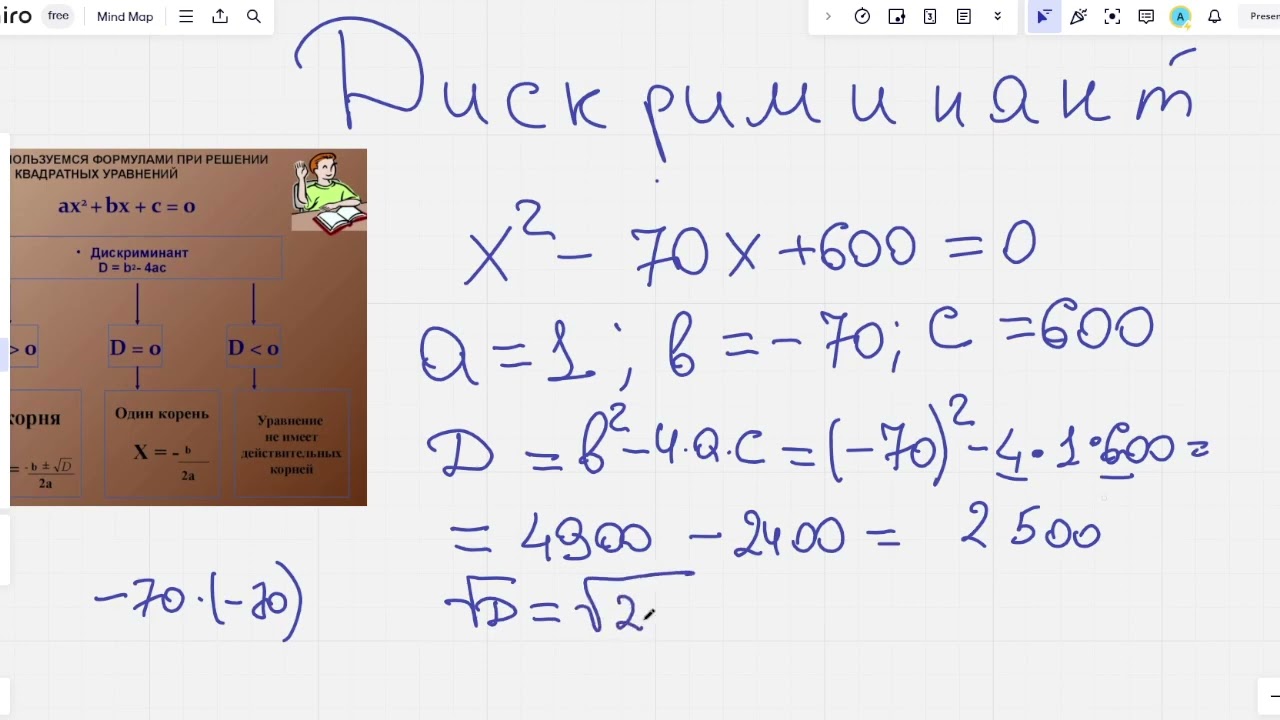 iro free Mind Map
Presen
Дискриминант
ОЛЬЗУЕМСЯ ФОРМУЛАМИ ПРИ РЕШЕНИИ
КВАДРАТНЫХ УРАВНЕНИЙ
ax² + bx + c = 0
• Дискриминант
D = b²- 4ac
> 0
D = 0
D < 0
корня
= -b ± √D / 2a
Один корень
X = - b / 2a
Уравнение
не имеет
действительных
корней
x² - 70x + 600 = 0
a = 1 ; в = - 70 ; c = 600
D = в² - 4·a·c = (-70)² - 4·1·600 =
= 4900 - 2400 = 2500
-70·(-70)
√D = √2